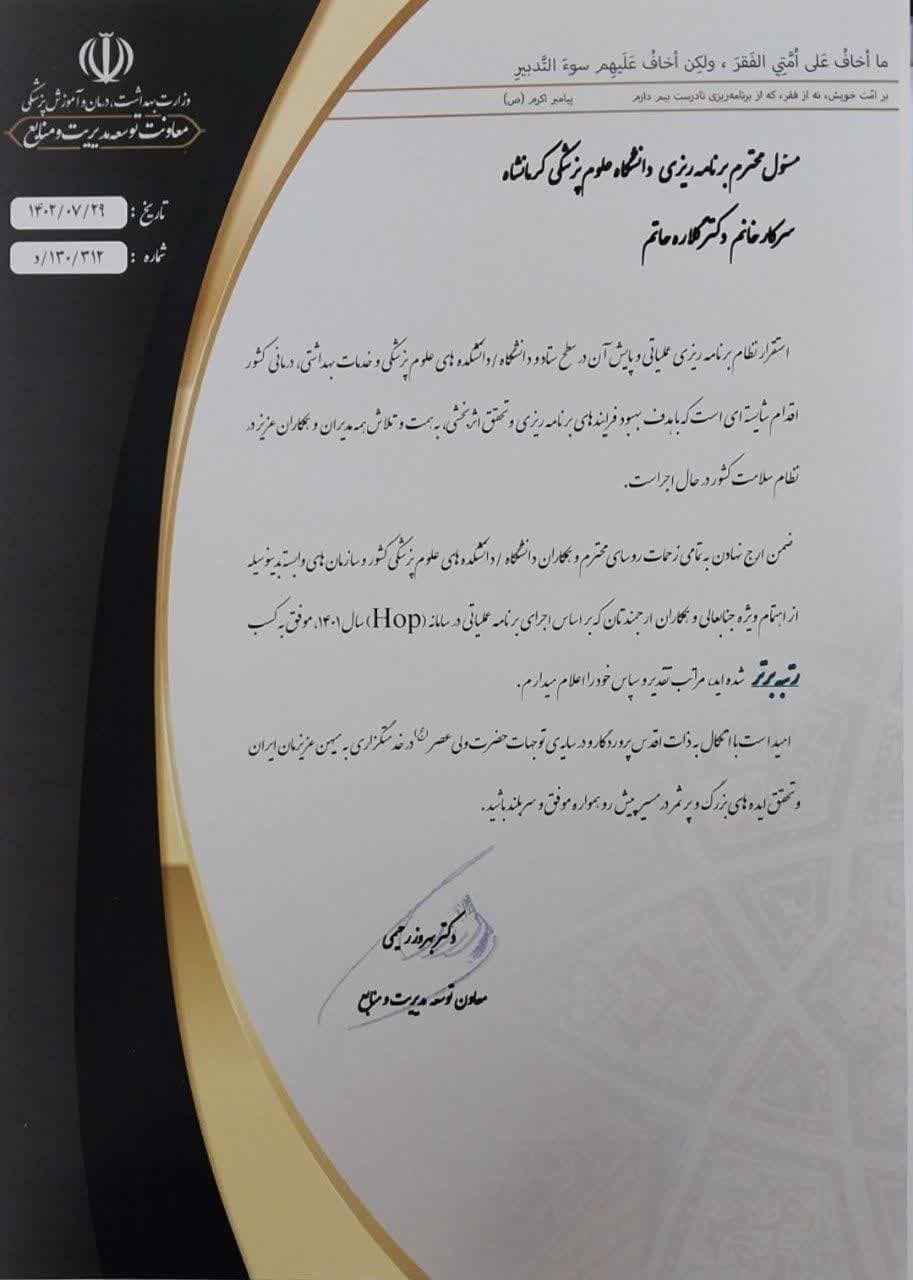 ما أخافُ عَلى أُمَّتِي الفَقرَ ، ولكِن أخافُ عَلَيهِم سوءَ التَّدبيرِ
بر امّت خویش، نه از فقر، که از برنامه‌ریزی نادرست بیم دارم
پیامبر اکرم (ص)
وزارت بهداشت، درمان و آموزش پزشکی
معاونت توسعه مدیریت و منابع
تاریخ : ۱۴۰۲/۰۷/۲۹
شماره : ۱۳۰/۳۱۲/د
مسئول محترم برنامه ریزی دانشگاه علوم پزشکی کرمانشاه
سرکار خانم دکتر گلاره حاتم
استقرار نظام برنامه ریزی عملیاتی و پایش آن در سطح ستاد و دانشگاه / دانشکده های علوم پزشکی و خدمات بهداشتی، درمانی کشور
اقدام شایسته ای است که با هدف بهبود فرایندهای برنامه ریزی و تحقق اثربخشی، به همت و تلاش همه مدیران و همکاران عزیز در
نظام سلامت کشور در حال اجراست.
ضمن ارج نهادن به تمامی زحمات روسای محترم و همکاران دانشگاه / دانشکده های علوم پزشکی کشور و سازمان های وابسته بدینوسیله
از اهتمام ویژه جنابعالی و همکاران ارجمندتان که بر اساس اجرای برنامه عملیاتی در سامانه (Hop) سال ۱۴۰۱، موفق به کسب
رتبه برتر شده اید، مراتب تقدیر و سپاس خود را اعلام میدارم.
امید است با اتکال به ذات اقدس پروردگار و در سایه ی توجهات حضرت ولی عصر (عج) در خدمتگزاری به میهن عزیزمان ایران
و تحقق ایده های بزرگ و پرثمر در مسیر پیش رو همواره موفق و سربلند باشید.
دکتر بهروز رحیمی
معاون توسعه مدیریت و منابع